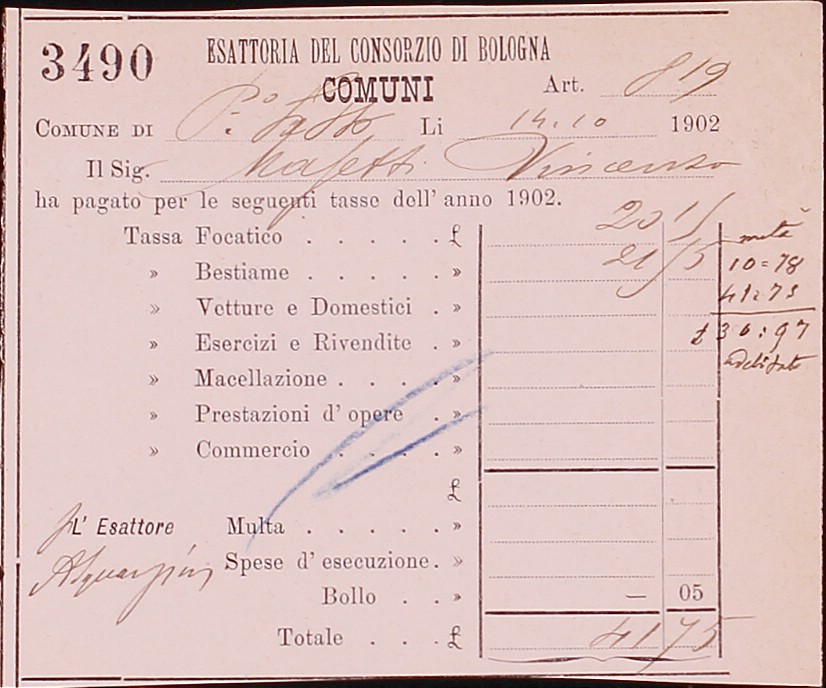 3490 ESATTORIA DEL CONSORZIO DI BOLOGNA
COMUNI Art. 819
COMUNE DI Li 14.10 1902
Il Sig. Vincenzo
ha pagato per le seguenti tasse dell' anno 1902.
Tassa Focatico . . . . . £ 20
» Bestiame . . . . . » 21 75
» Vetture e Domestici . »
» Esercizi e Rivendite . »
» Macellazione . . . . »
» Prestazioni d' opere . »
» Commercio . . . . »
£
L' Esattore Multa . . . . . »
Spese d' esecuzione. »
Bollo . . » — 05
Totale . . . £ 41 75
metà
10=78